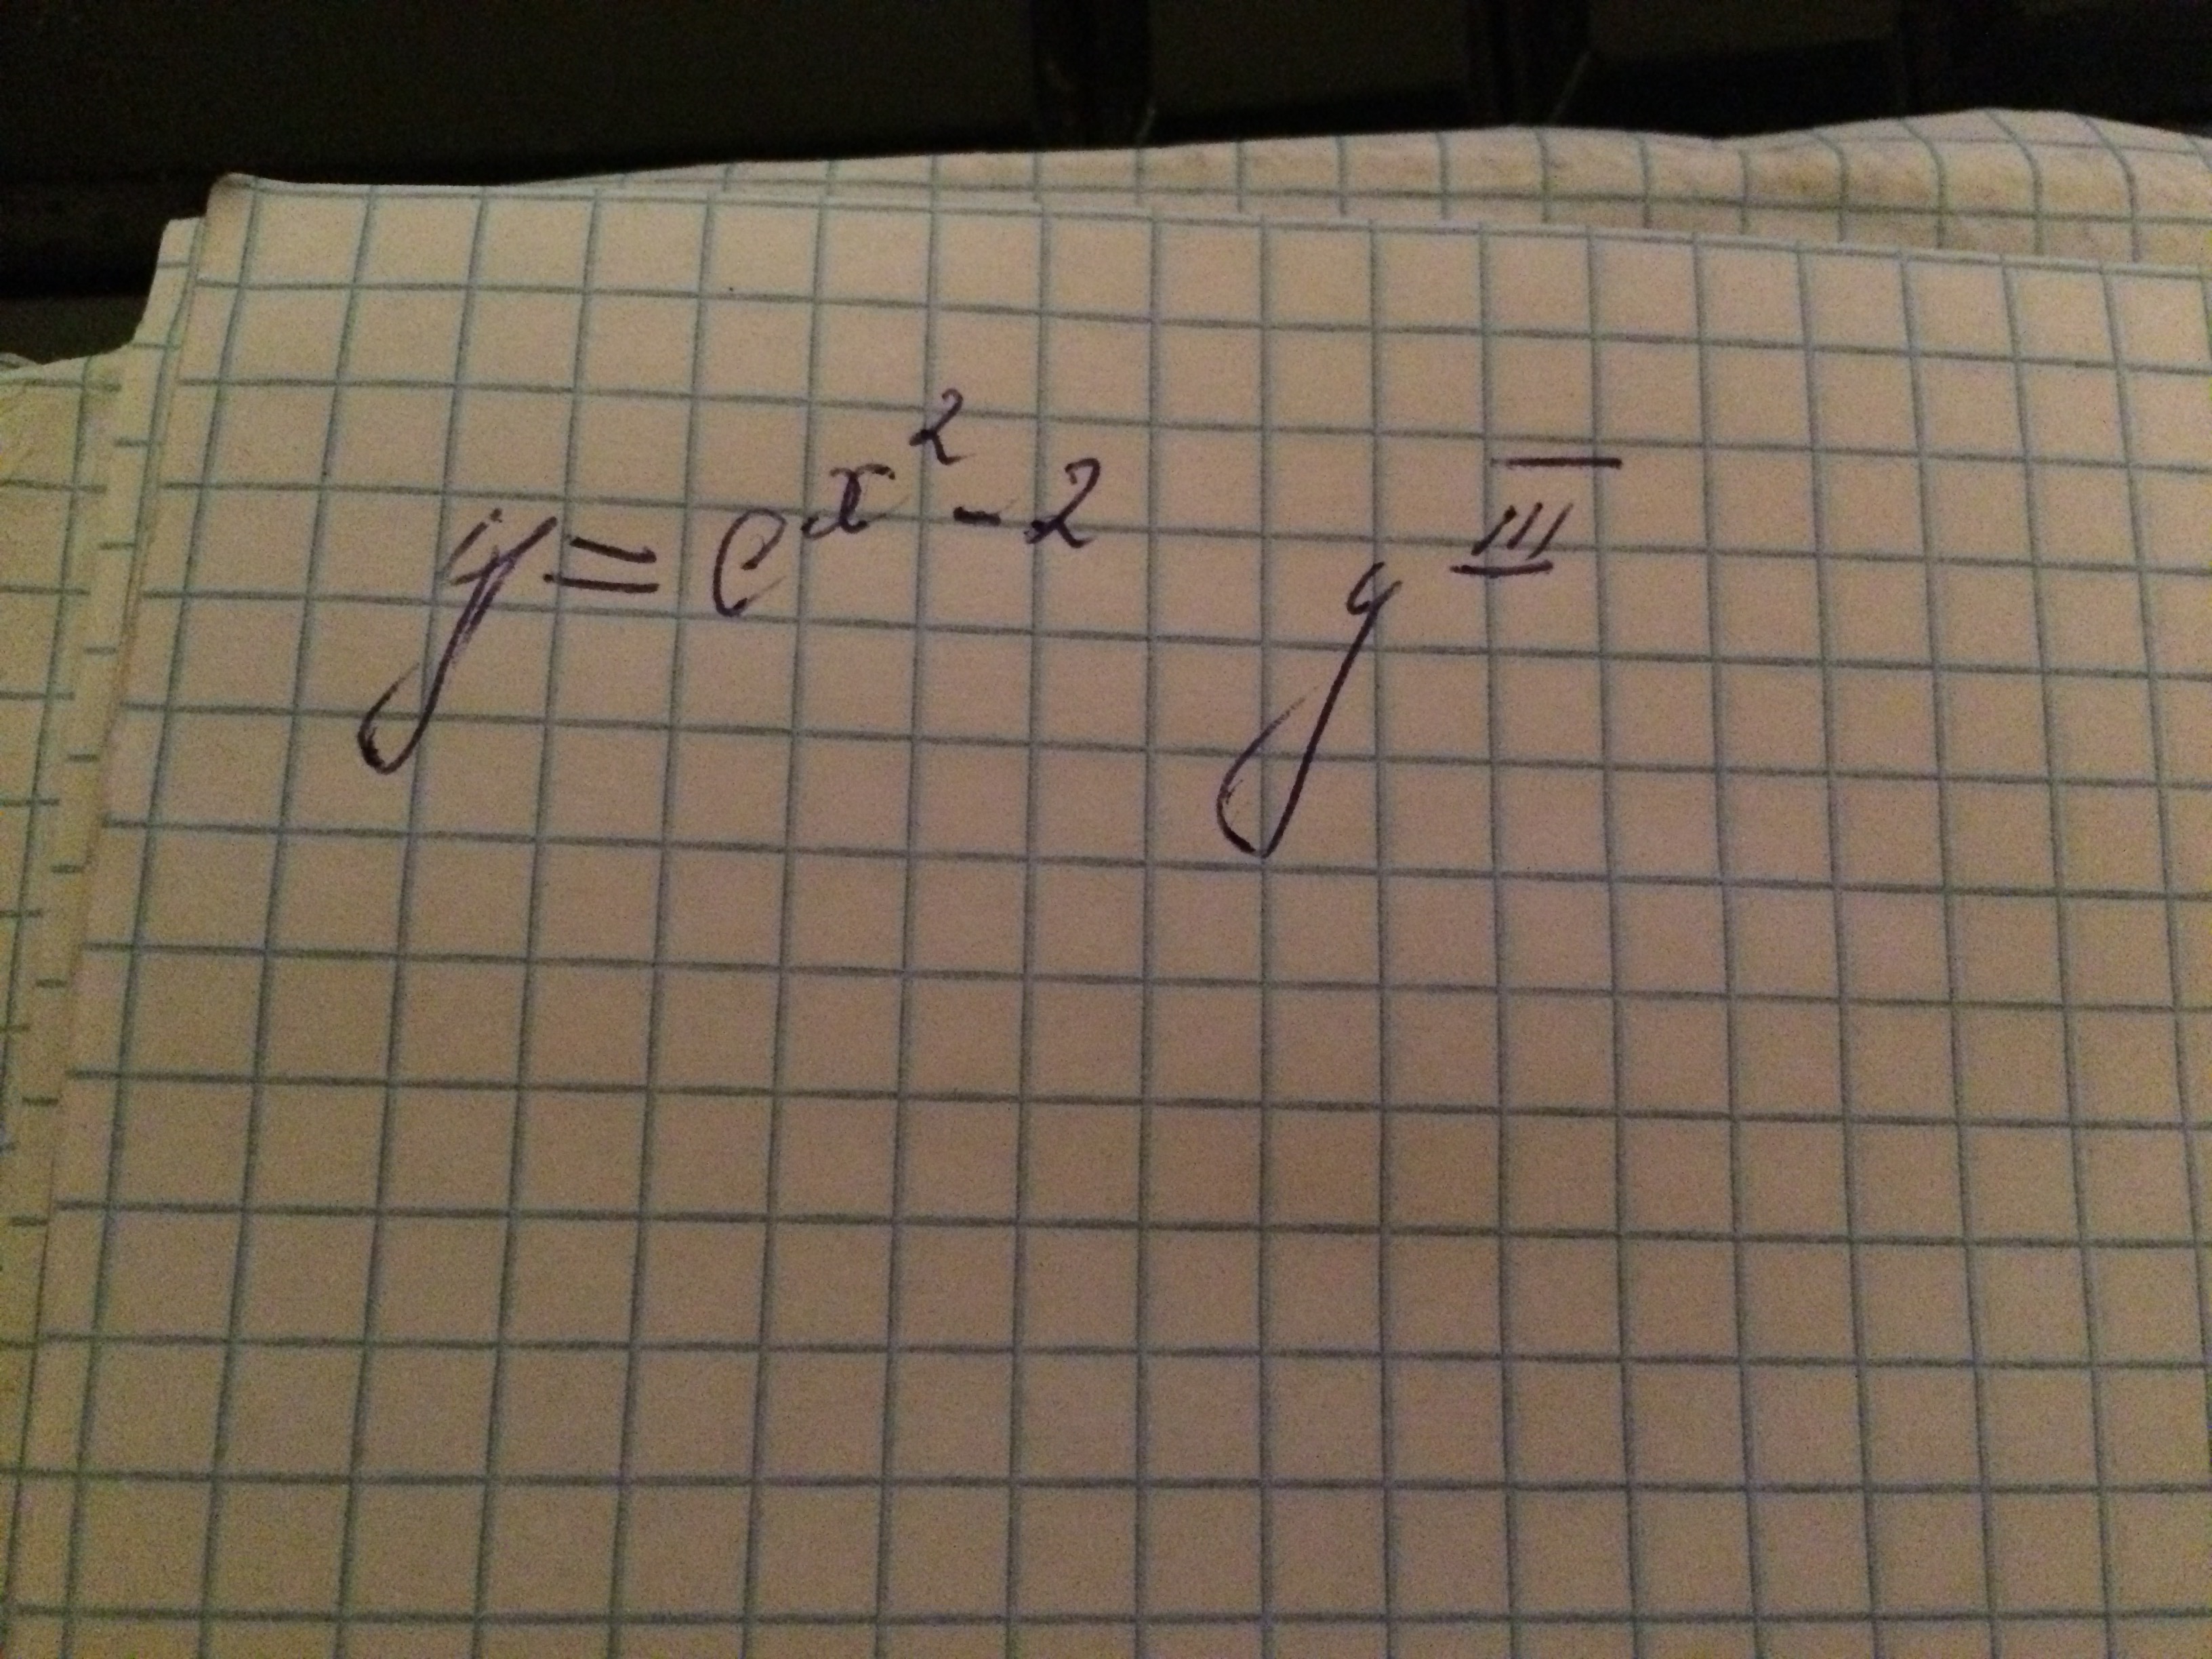 y = e^{x^2 - 2}   y^{III}